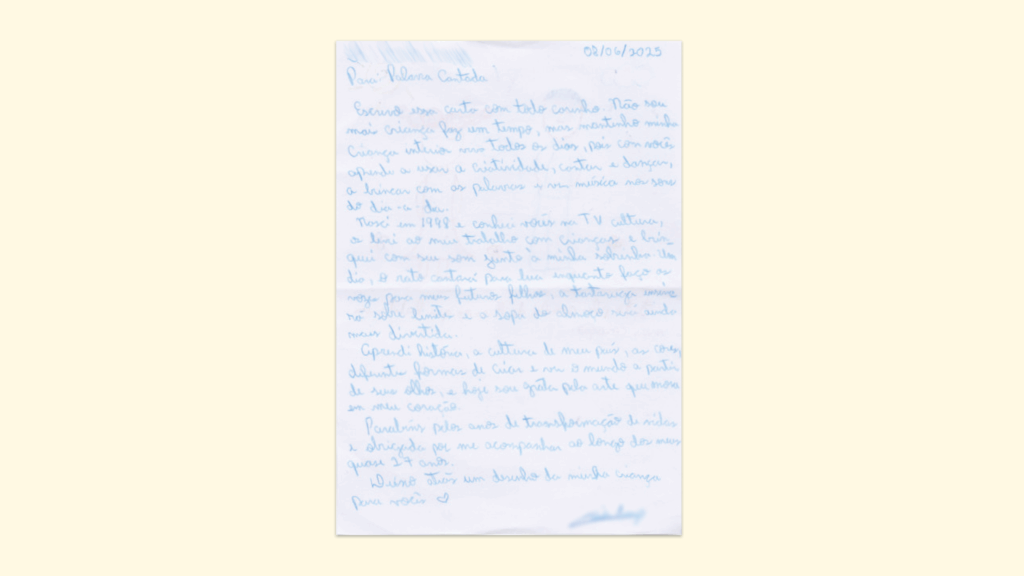 08/06/2025
Para: Palavra Cantada
Escrevo essa carta com todo carinho. Não sou
mais criança faz um tempo, mas mantenho minha
criança interior viva todos os dias, pois com vocês
aprendi a usar a criatividade, cantar e dançar,
a brincar com as palavras e ver música nos sons
do dia-a-dia.
Nasci em 1998 e conheci vocês na TV cultura,
levei ao meu trabalho com crianças e brin-
quei com seu som junto à minha sobrinha. Um
dia, o rato cantará para lua enquanto faço as
vozes para meus futuros filhos, a tartaruga ensina-
rá sobre limite e a sopa do almoço será ainda
mais divertida.
Aprendi história, a cultura de meu país, as cores,
diferentes formas de criar e ver o mundo a partir
de seus olhos, e hoje sou grata pela arte que mora
em meu coração.
Parabéns pelos anos de transformação de vidas
e obrigada por me acompanhar ao longo dos meus
quase 27 anos.
Deixo atrás um desenho da minha criança
para vocês ♡